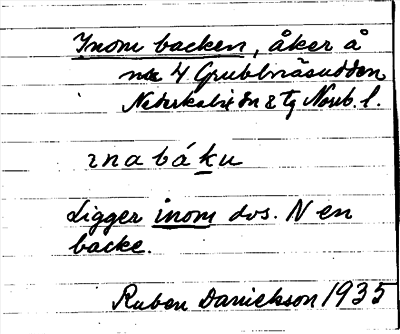 Inom backen, åker å
nr 4 Grubbnäsudden
Nederkalix sn & tg Norrb. l.
ɪnabáku
Ligger inom dvs. N en
backe.
Ruben Danielsson 1935